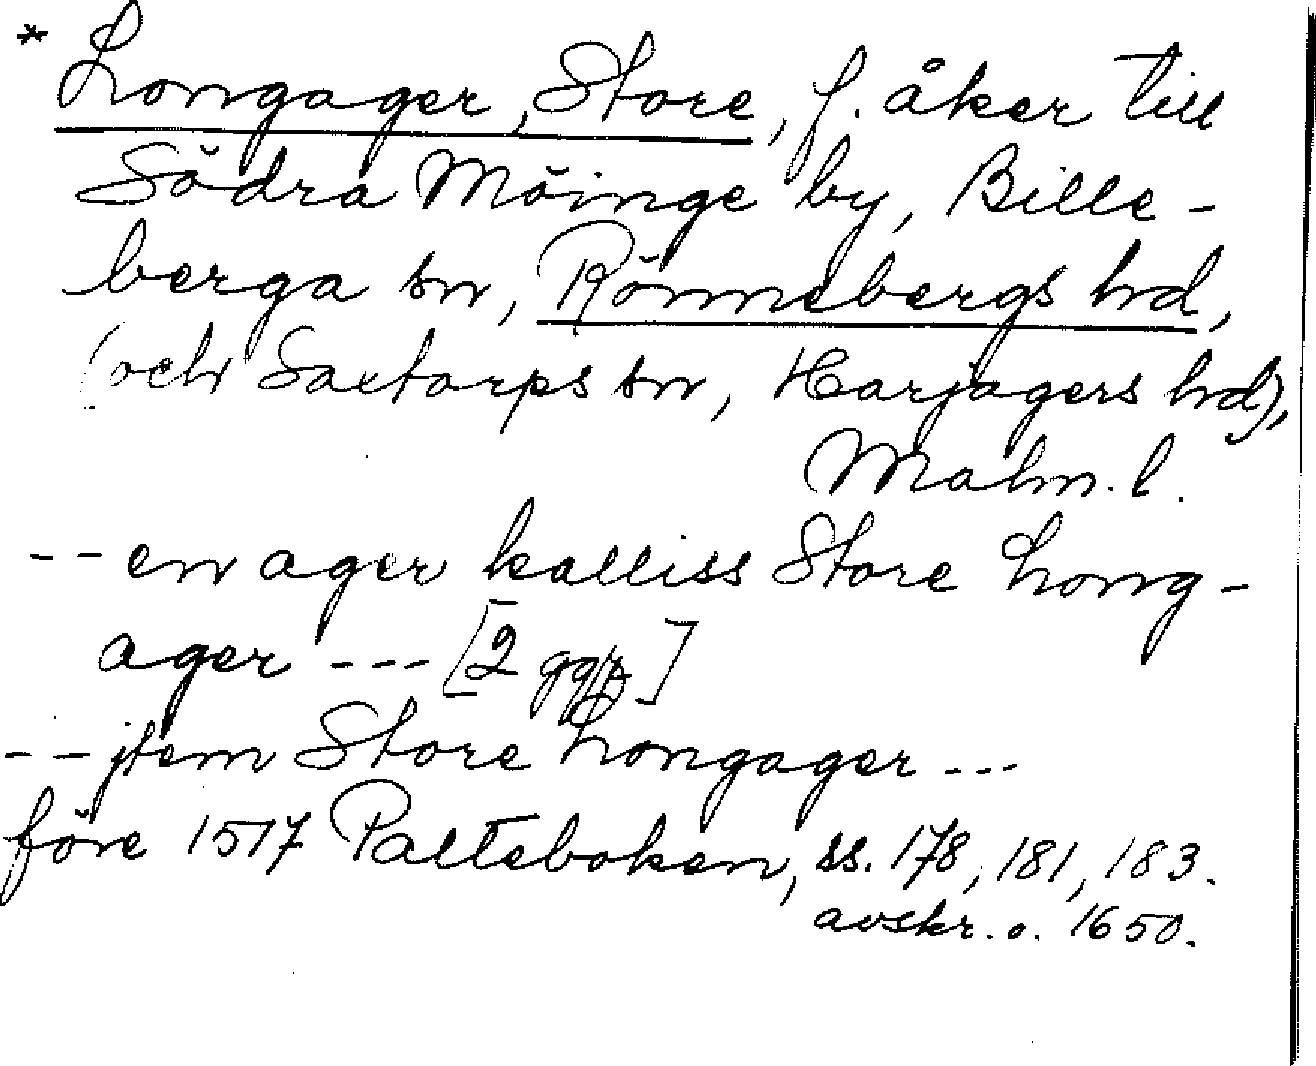 * Longager, Store, f. åker till
Södra Möinge by, Bille-
berga sn, Rönnebergs hd,
(och Saxtorps sn, Harjagers hd),
Malm. l.
-- en ager kalliss Store Long-
ager --- [2 ggr]
-- jtem Store Longager ---
före 1517 Palteboken, ss. 178, 181, 183.
avskr. o. 1650.